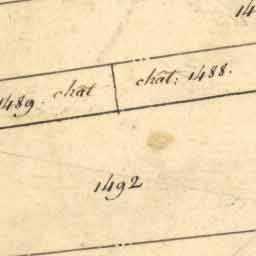 14
1489. chāt
chāt: 1488.
1492